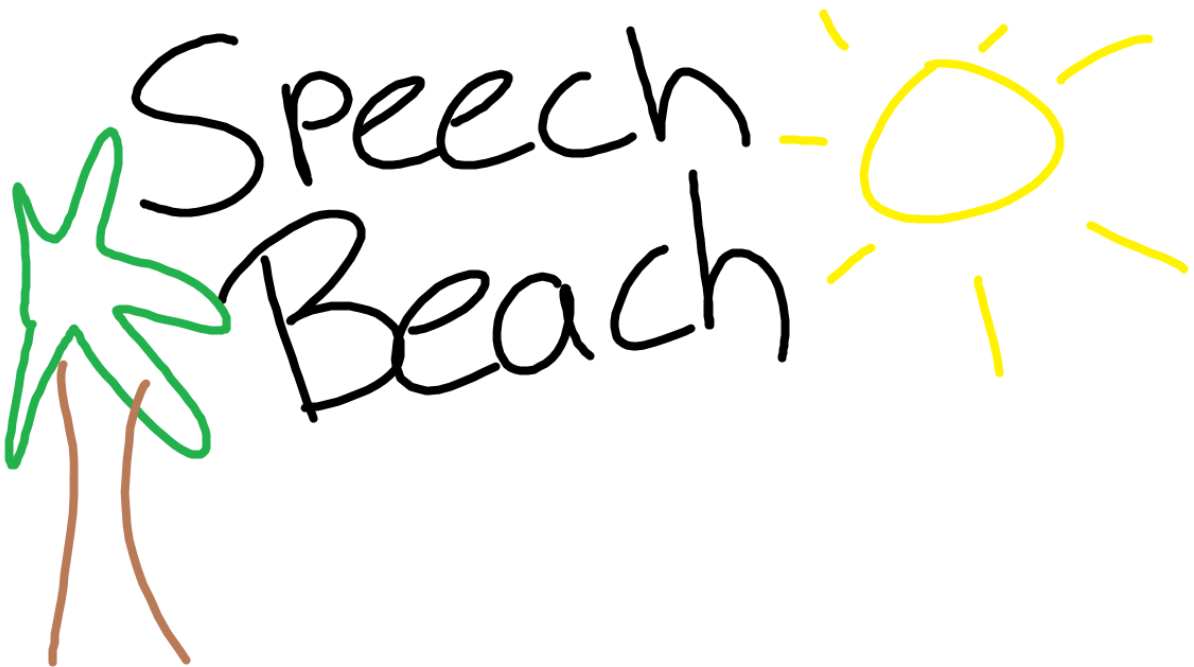 Speech
Beach